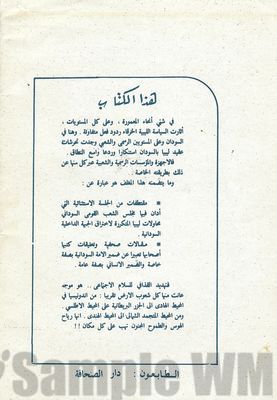 هذا الكتاب
في شتي أنحاء المعمورة ، وعلى كل المستويات ،
أثارت السياسة الليبية الخرقاء ردود فعل متفاوتة . وهنا في
السودان وعلى المستويين الرسمي والشعبي وجدت تحرشات
عقيد ليبيا بالسودان استنكارا وردعا واسع النطاق ،
فالاجهزة والمؤسسات الرسمية والشعبية عبر كل منها عن
ذلك بطريقته الخاصة :
وما يتضمنه هذا المغلف هو عبارة عن :
* مقتطفات من الجلسة الاستثنائية التي
أدان فيها مجلس الشعب القومى السودانى
محاولات ليبيا المتكررة لاختراق الجبهة الداخلية
السودانية .
* مقالات صحفية وتعليقات كتبها
أصحابها تعبيرا عن ضمير الامة السودانية بصفة
خاصة والضمير الانسانى بصفة عامة .
فتهديد القذافى للسلام الاجتماعى .. هو موجه
عانت منها كل شعوب الارض تقريبا : من اندونيسيا في
المحيط الهادى الى الجزر البريطانية على المحيط الاطلسى .
ومن المحيط المتجمد الشمالى الى المحيط الهندى . انها رياح
الهوس والطموح المجنون تهب على كل مكان !!
الطابعون : دار الصحافة
Sample WM